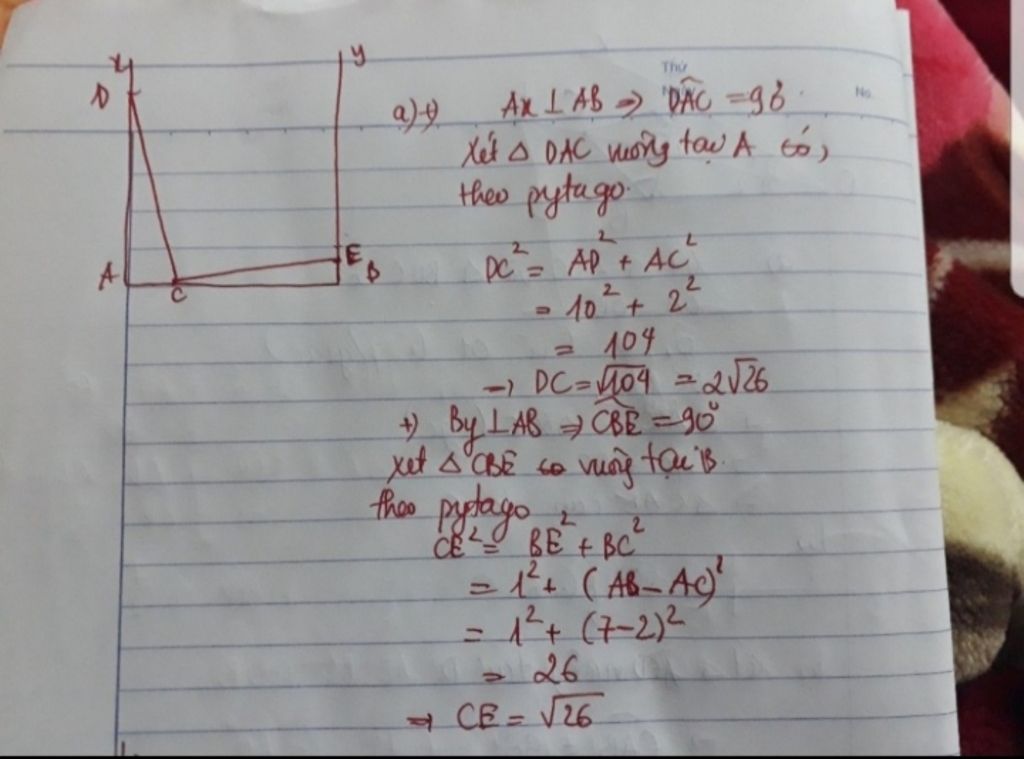 x
y
D
A
C
E
B
Thứ
No.
a) +) Ax ⊥ AB ⇒ DAC = 90°
Xét △ DAC vuông tại A có,
theo pytago
DC² = AD² + AC²
= 10² + 2²
= 104
→ DC = √104 = 2√26
+) By ⊥ AB ⇒ CBE = 90°
xét △ CBE có vuông tại B.
theo pytago
CE² = BE² + BC²
= 1² + (AB - AC)²
= 1² + (7-2)²
= 26
⇒ CE = √26